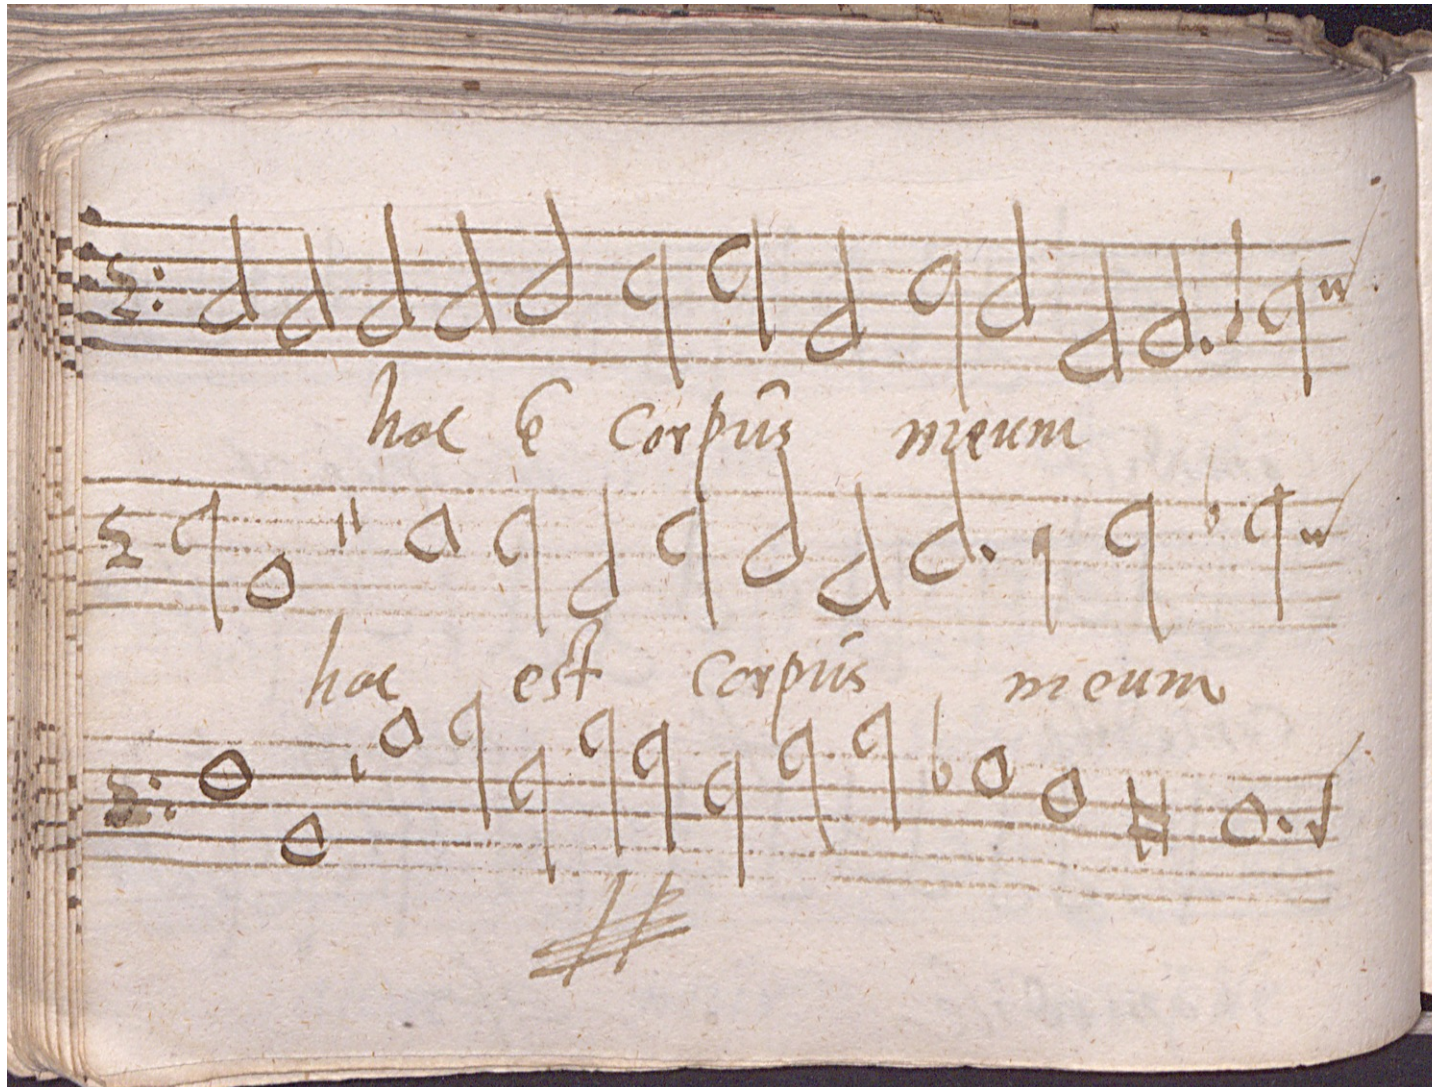 hoc ē corpus meum
hoc est corpus meum